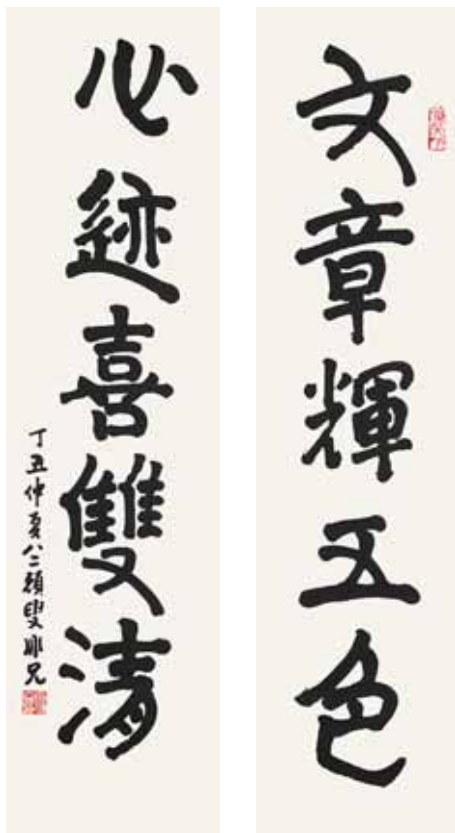 文章輝五色
心迹喜雙清
丁丑仲夏八二頑叟非兄